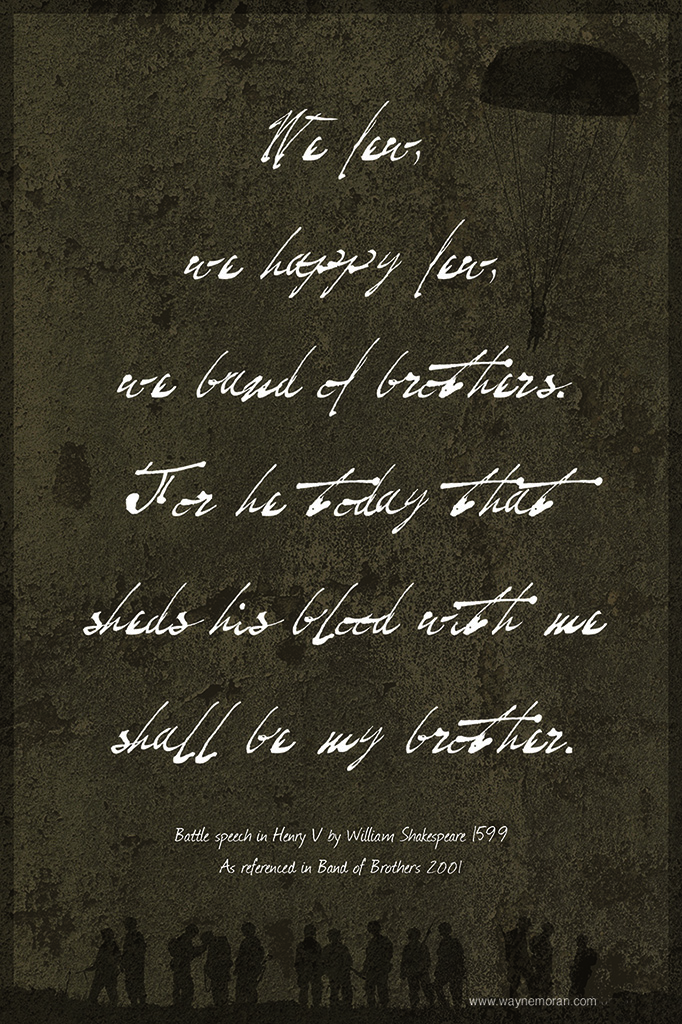 We few,
we happy few,
we band of brothers.
For he today that
sheds his blood with me
shall be my brother.
Battle speech in Henry V by William Shakespeare 1599
As referenced in Band of Brothers 2001
www.waynemoran.com